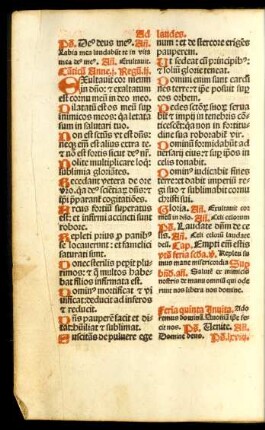 Ad
landes.
Ps. Deº deus meº. Añ.
Labia mea laudabūt te in vita
mea deº meº. Añ. Exultauit.
Cāticū Anne. i. Regū. ii.
Exultauit cor meum
in dn̄o: ⁊ exaltatum
est cornu meū in deo meo.
Dilatatū est os meū sup
inimicos meos: qa letata
sum in salutari tuo.
Non est sctūs vt est dn̄s:
neq; em̄ est alius extra te:
⁊ nō est fortis sicut dn̄s
Nolite multiplicare loq̄:
sublimia gloriātes.
Recedant vetera de ore
vro. qa deº scientiaꝝ dn̄s: ⁊
ip̄i p̄parant̄ cogitatiōes.
Arcus fortiū superatus
est: ⁊ infirmi accincti sunt
robore.
Repleti prius ꝓ panib⁹
se locauerunt: ⁊ famelici
saturati sunt.
Donec sterilis pepit plu-
rimos: ⁊ q̄ multos habe-
bat filios infirmata est.
Dn̄s mortificat ⁊ vi
uificat: deducit ad inferos
⁊ reducit.
Dn̄s pauperē facit et di
tat: hūiliat ⁊ sublimat.
Suscitās de puluere ege
num: et de stercore eriges
pauperem.
Ut sedeat cū principib⁹:
⁊ soliū glorie teneat.
Domini enim sunt cardi
nes terre: ⁊ ip̄e posuit sup
eos orbem.
Pedes sctōꝝ suoꝝ serua
bit ⁊ impij in tenebris cō-
ticescēt: qa non in fortitu-
dine sua roborabit̄ vir.
Dominū formidabūt ad
uersarij eius: et sup̄ ip̄os in
celis tonabit.
Dominº iudicabit fines
terre: et dabit imperiū re-
gi suo ⁊ sublimabit cornu
christi sui.
Gloria. Añ. Exultauit cor
meū in dn̄o. Añ. Celi celorum
Ps. Laudate dn̄m de ce
lis. Añ. Celi celorū laudate
deū. Cap. Empti em̄ estis
Repleti su-
mus mane misericordia Sup
Añ. Salutē ex inimicis
nostris ⁊ de manu omniū qui ode
runt nos libera nos domine.
Feria quinta Inuita. Ado
remus dominū. Quoniā ip̄e fe
cit nos. Ps. Uenite. Añ.
Domine deus.